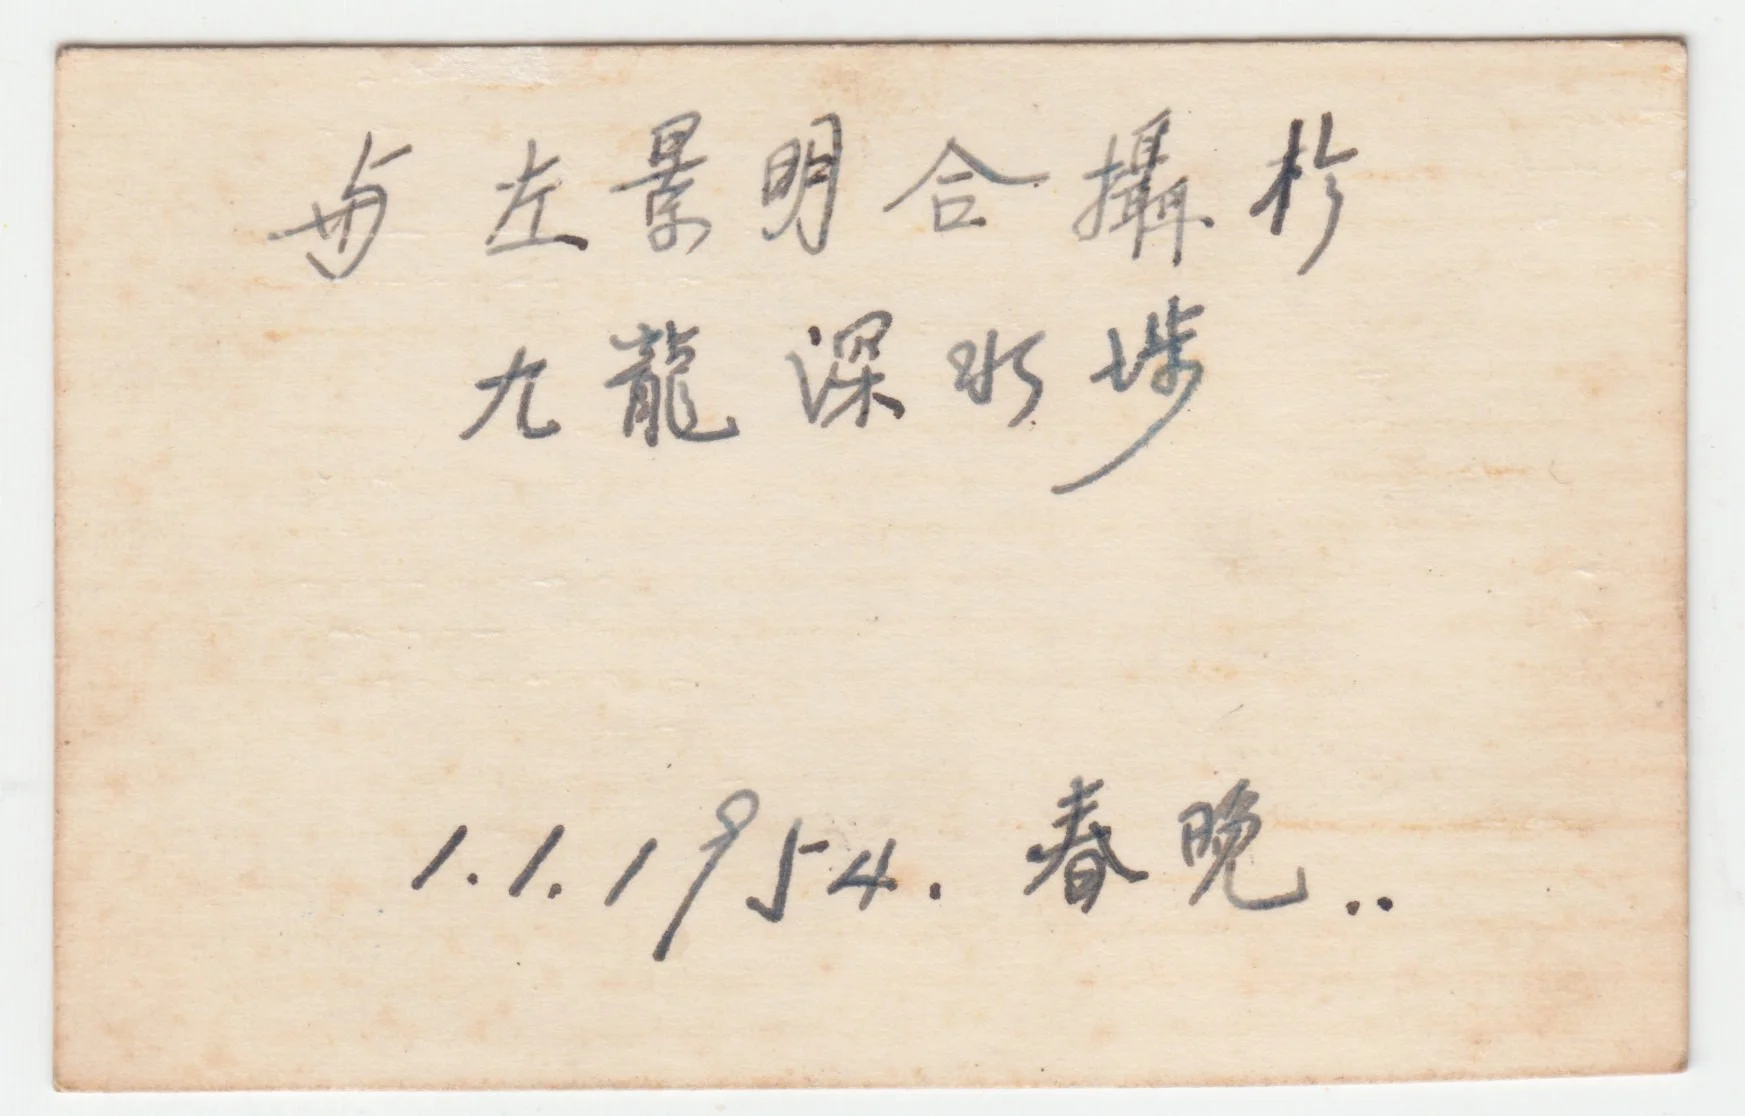 与左景明合攝於
九龍深水埗
1.1.1954. 春晚..